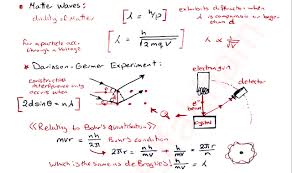 • Matter Waves:
duality of Matter
[λ = h/p]
exhibits diffraction when
λ is comparable or bigger
than d
For a particle acc.
through a Voltage
[λ = h/√2mqV]
• Davinson-Germer Experiment:
constructive
interference only
occurs when
[2dsinθ = nλ]
electron gun
detector
e⁻
beam
<<Relating to Bohr's quantisation>>
mvr = nh/2π Bohr's condition
→ 2πr = nh/mv → h/mv = 2πr/n
Which is the same as de Broglie's! h/mv = λ